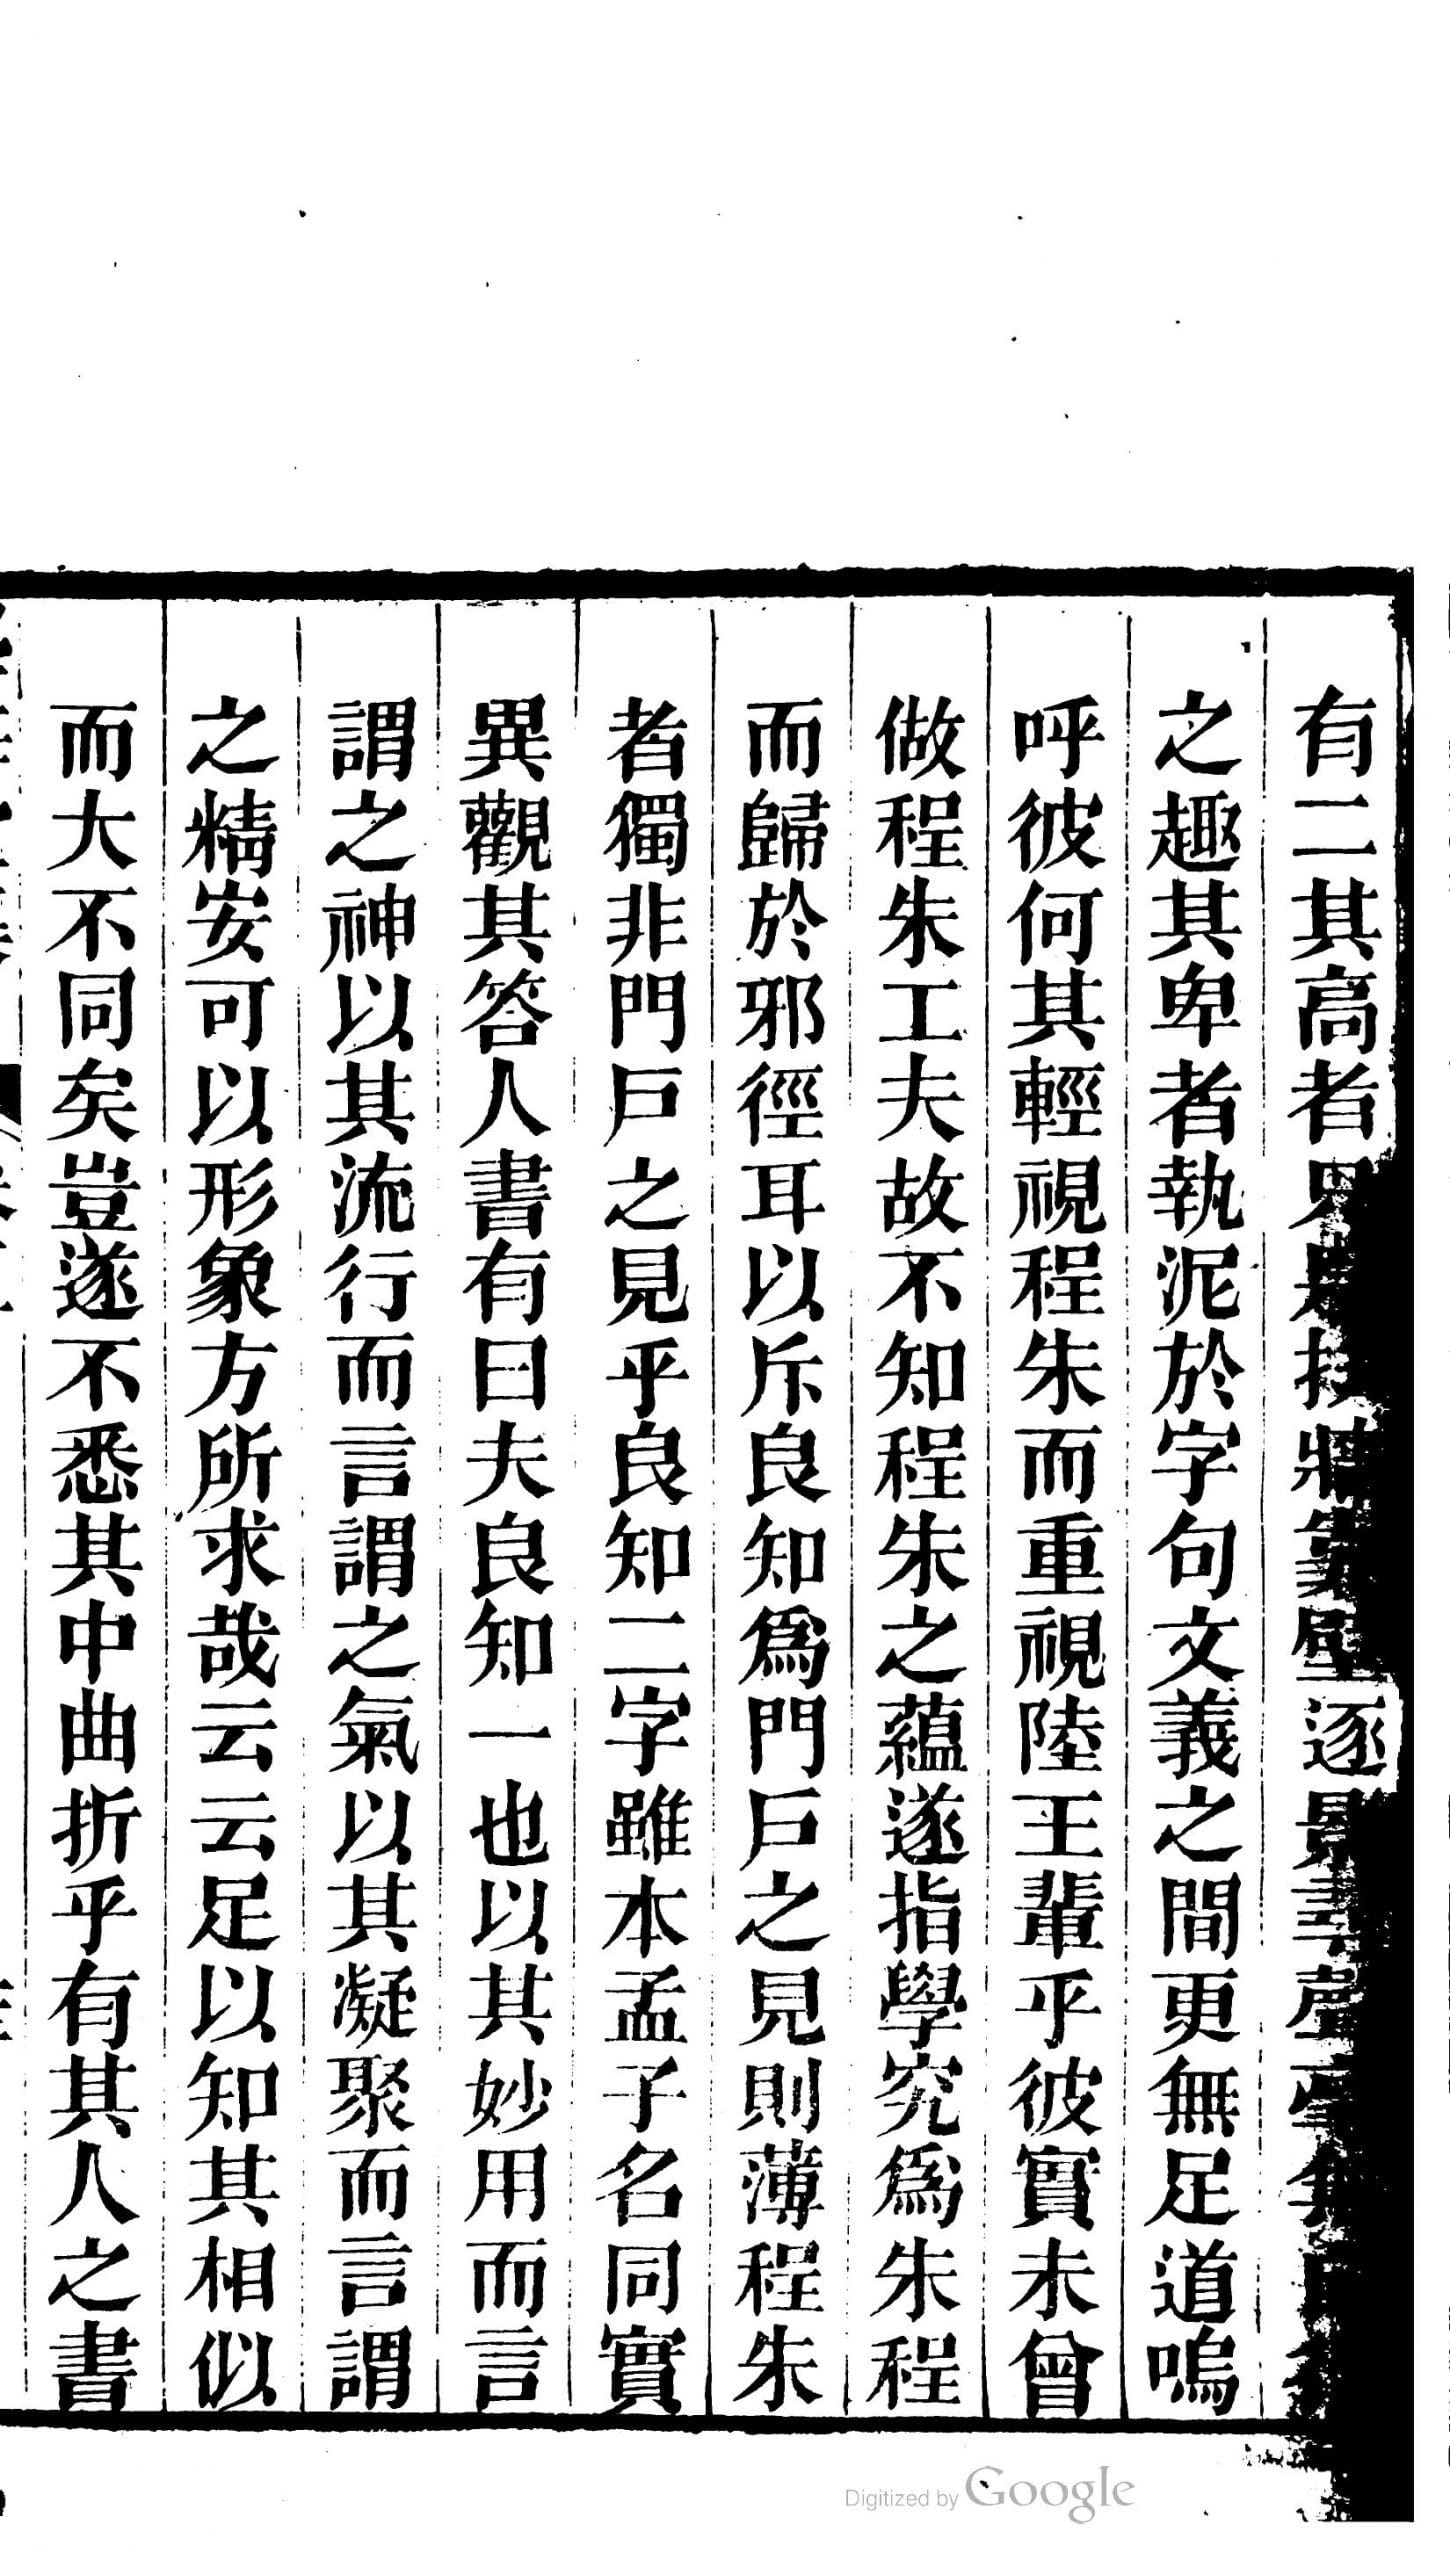 有二其高者 逐
之趣其卑者執泥於字句文義之間更無足道嗚
呼彼何其輕視程朱而重視陸王輩乎彼實未曾
做程朱工夫故不知程朱之蘊遂指學究爲朱程
而歸於邪徑耳以斥良知爲門戶之見則薄程朱
者獨非門戶之見乎良知二字雖本孟子名同實
異觀其答人書有曰夫良知一也以其妙用而言
謂之神以其流行而言謂之氣以其凝聚而言謂
之精安可以形象方所求哉云云足以知其相似
而大不同矣豈遂不悉其中曲折乎有其人之書
Digitized by Google